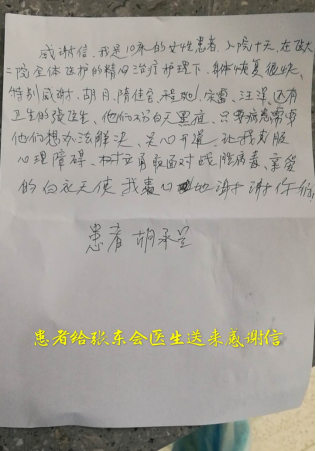 感谢信，我是10床的女性患者，入院十天，在医大
二院全体医护的精心治疗护理下，身体恢复很快，
特别感谢，胡月，隋佳 宋雷，汪洋，还有
卫生的张医生，他们不分白天黑夜，只要病患需要
他们想办法解决，关心开导，让我克服
心理障碍，树立勇敢面对战胜病毒，亲爱
的白衣天使我衷心地谢谢你们，
患者 胡
患者给张东会医生送来感谢信